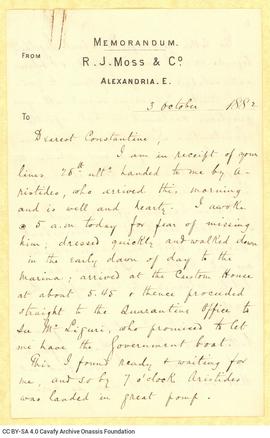 MEMORANDUM.
FROM
R. J. MOSS & Co.
ALEXANDRIA. E.
3 October 1882
TO
Dearest Constantine,
I am in receipt of your
lines 26th ulto. handed to me by A-
ristides, who arrived this morning
and is well and hearty. I awoke
@ 5 a.m today for fear of missing
him; dressed quickly, and walked down
in the early dawn of day to the
Marina; arrived at the Custom House
at about 5.45 & thence proceeded
straight to the Quarantine Office to
see Mr. Liguri, who promised to let
me have the Government boat.
This I found ready & waiting for
me, and so by 7 o'clock Aristides
was landed in great pomp.
CC BY-SA 4.0 Cavafy Archive Onassis Foundation